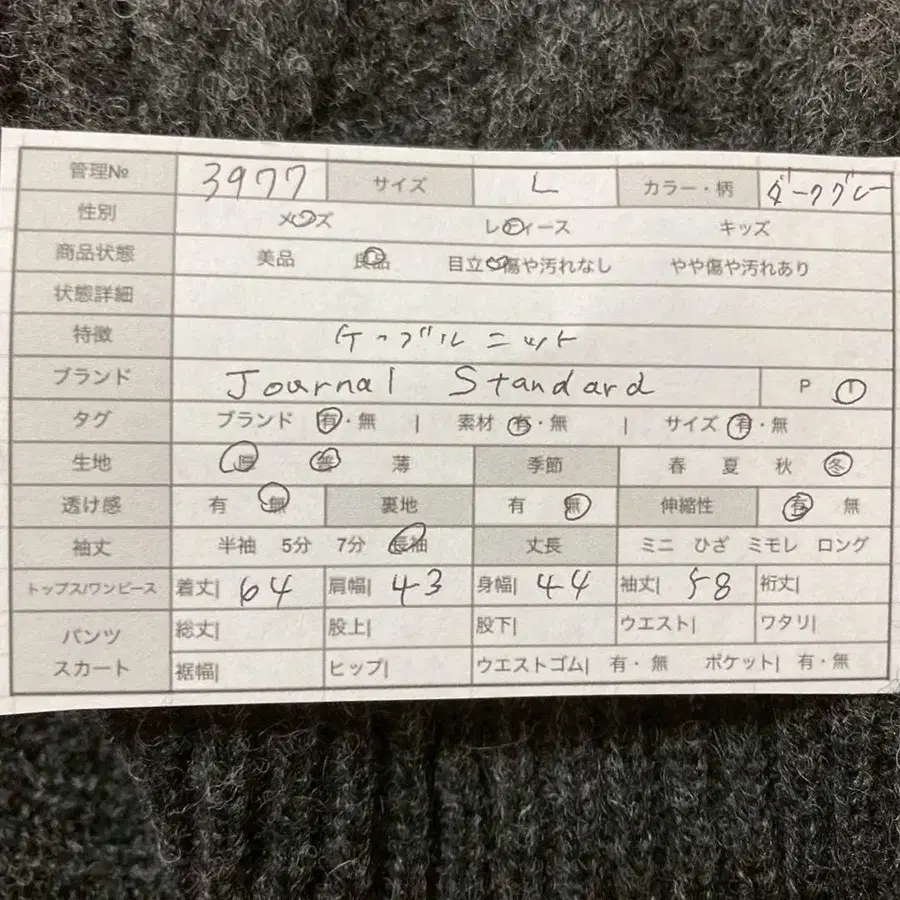 管理№ 3977 サイズ L カラー・柄 ダークグレー
性別 メンズ レディース キッズ
商品状態 美品 良品 目立つ傷や汚れなし やや傷や汚れあり
状態詳細
特徴 ケーブルニット
ブランド Journal Standard P I
タグ ブランド 有・無 | 素材 有・無 | サイズ 有・無
生地 厚 普 薄 季節 春 夏 秋 冬
透け感 有 無 裏地 有 無 伸縮性 有 無
袖丈 半袖 5分 7分 長袖 丈長 ミニ ひざ ミモレ ロング
トップス/ワンピース 着丈| 64 肩幅| 43 身幅| 44 袖丈| 58 裄丈|
パンツ スカート 総丈| 股上| 股下| ウエスト| ワタリ|
裾幅| ヒップ| ウエストゴム| 有・無 ポケット| 有・無